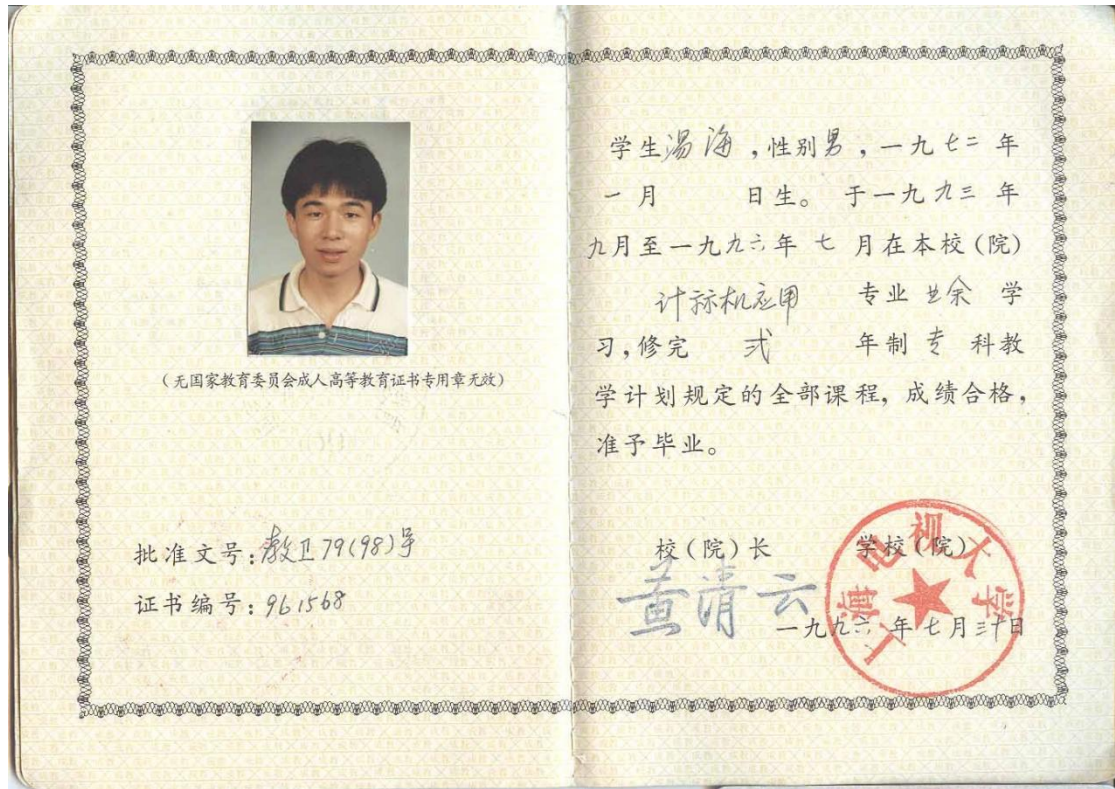 (无国家教育委员会成人高等教育证书专用章无效)
批准文号:教卫79(98)号
证书编号:961568
学生汤海,性别男,一九七二年
一月 日生。于一九九三年
九月至一九九六年七月在本校(院)
计标机应用 专业业余学
习,修完 弍 年制专科教
学计划规定的全部课程,成绩合格,
准予毕业。
校(院)长 学校(院)
黄清云
上海电视大学
一九九六年七月三十日